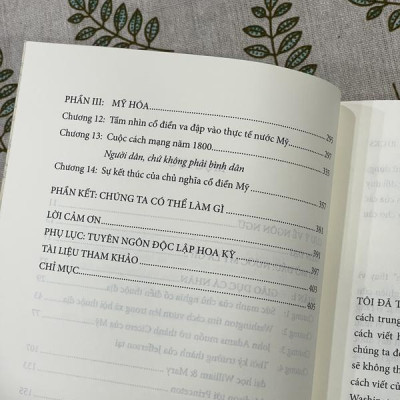 PHẦN III: MỸ HÓA 295
Chương 12: Tầm nhìn cổ điển va đập vào thực tế nước Mỹ 297
Chương 13: Cuộc cách mạng năm 1800. 335
Người dân, chứ không phải bình dân
Chương 14: Sự kết thúc của chủ nghĩa cổ điển Mỹ 357
PHẦN KẾT: CHÚNG TA CÓ THỂ LÀM GÌ 381
LỜI CẢM ƠN 391
PHỤ LỤC: TUYÊN NGÔN ĐỘC LẬP HOA KỲ 397
TÀI LIỆU THAM KHẢO
CHỈ MỤC 405
TÔI ĐÃ T
cách trung
cách viết
chúng ta
sẽ không
cách viết